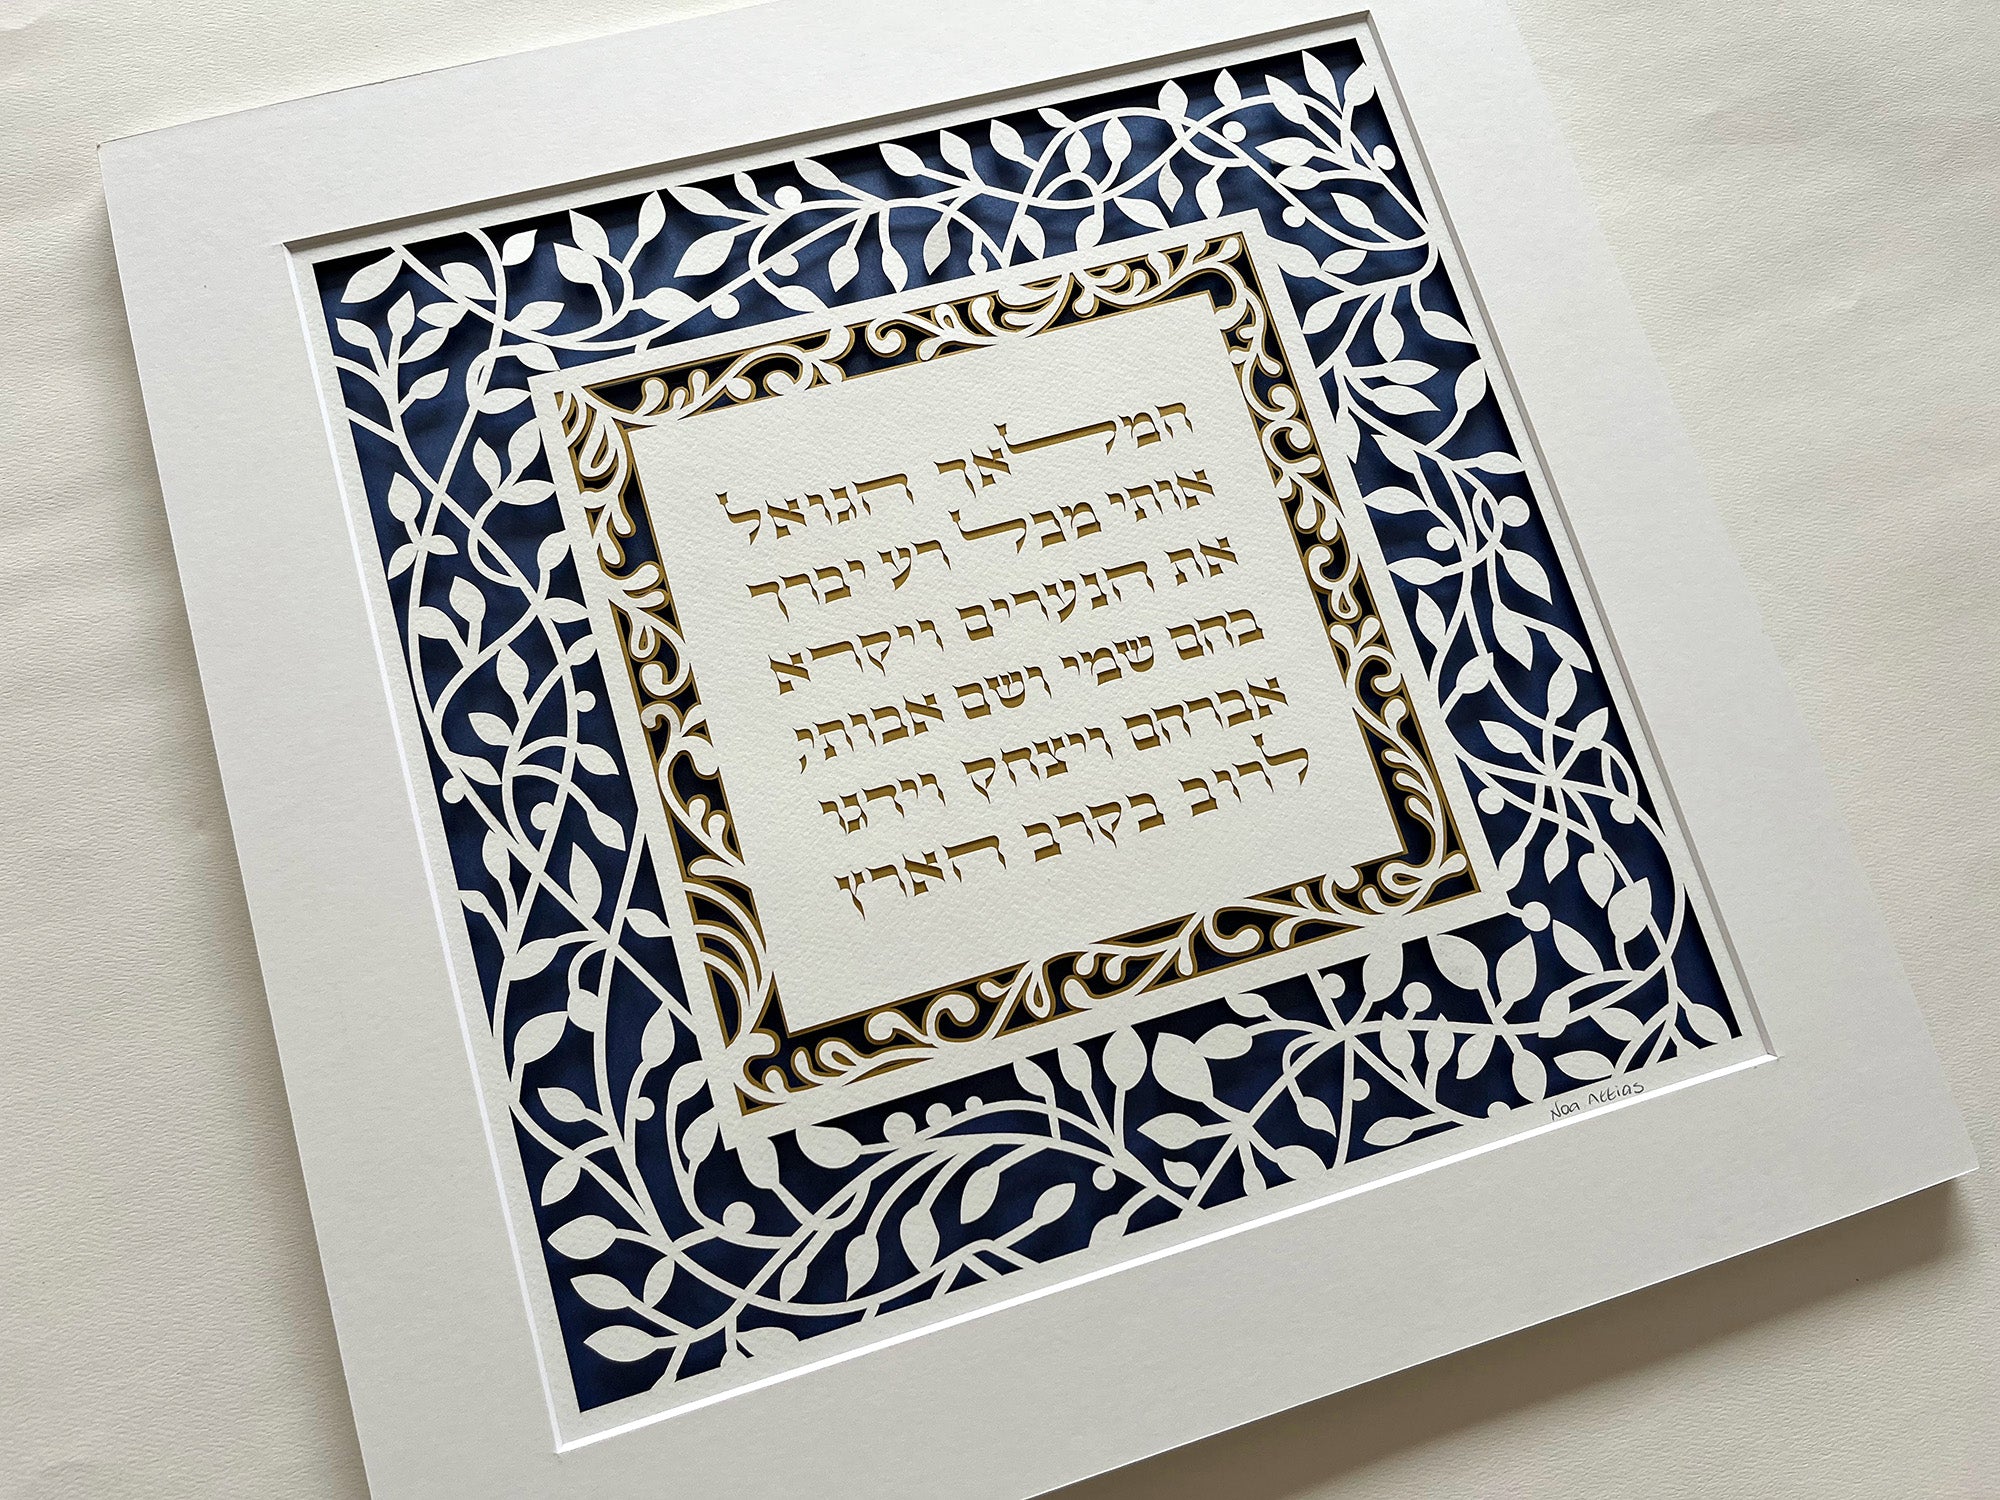 המלאך הגואל
אותי מכל רע יברך
את הנערים ויקרא
בהם שמי ושם אבותי
אברהם ויצחק וידגו
לרוב בקרב הארץ
Noa Attias